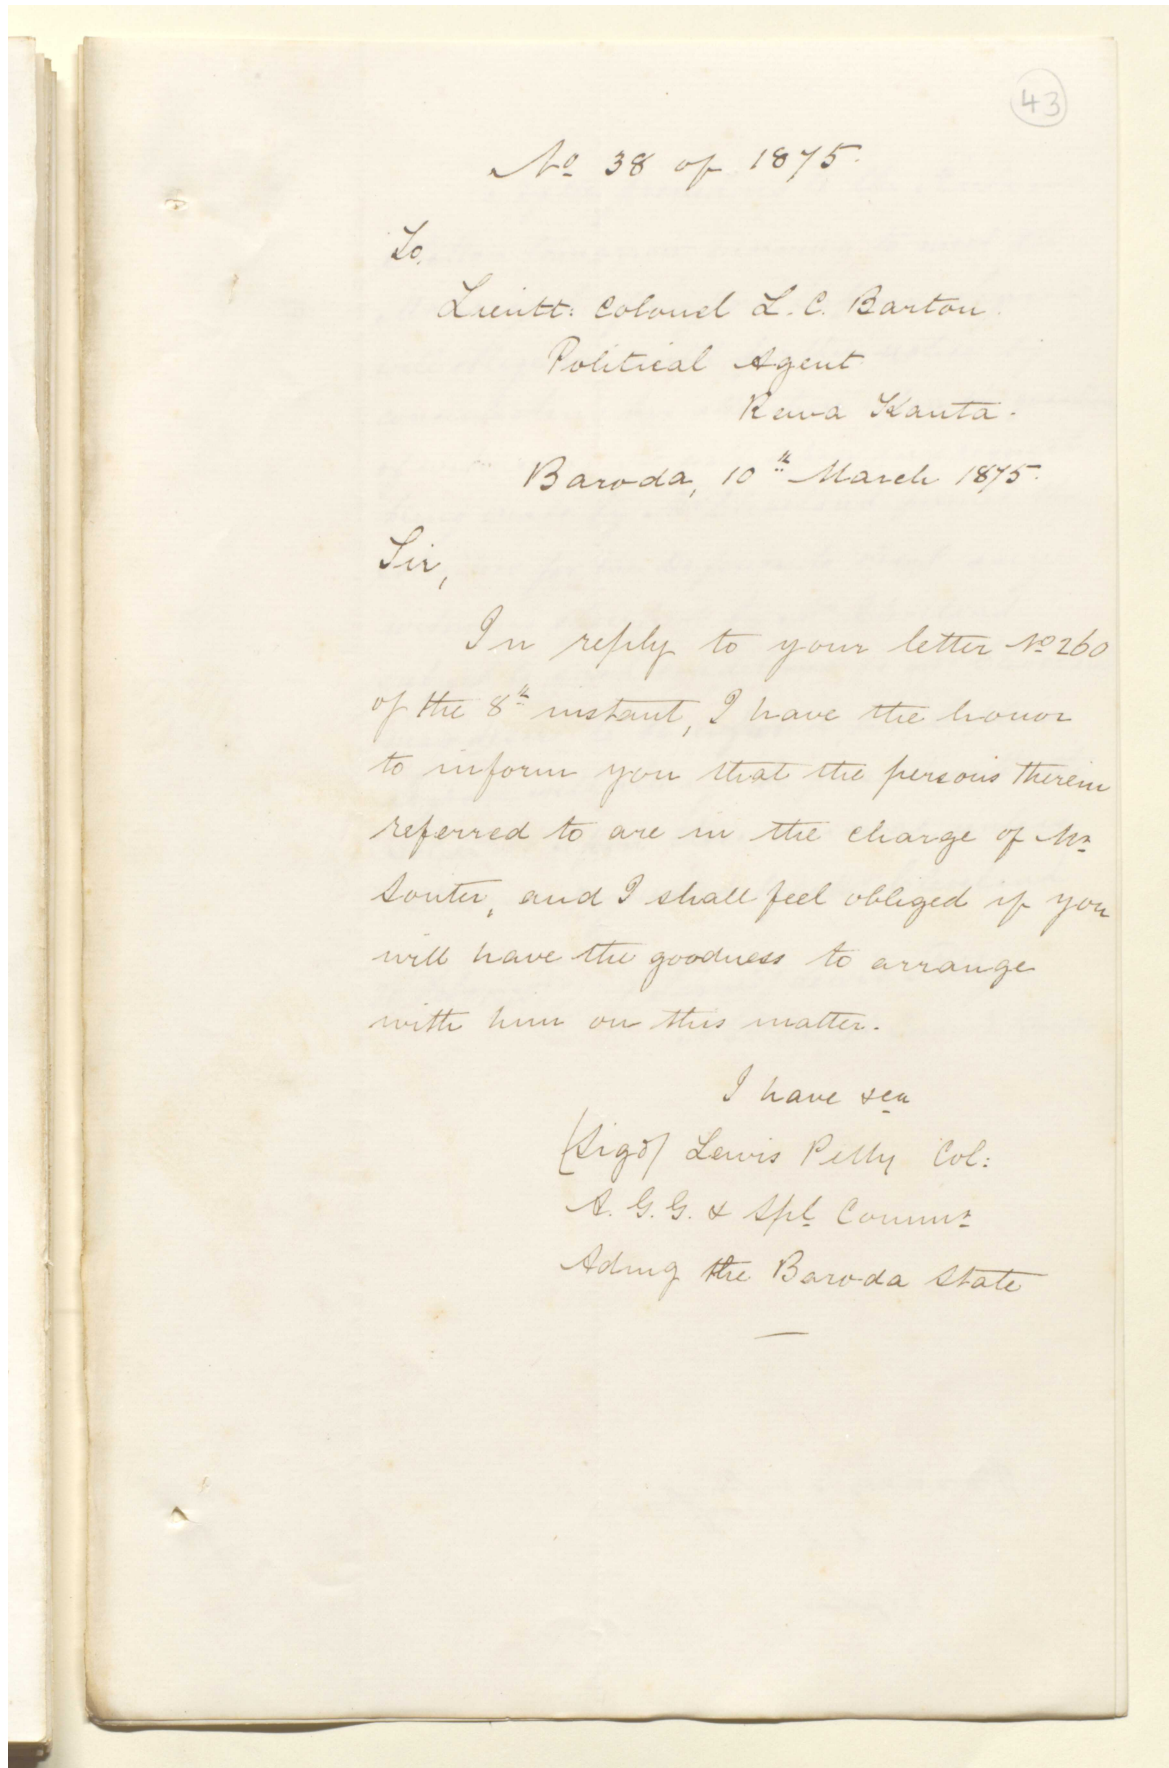 43
No 38 of 1875.
To,
Lieutt: Colonel L. C. Barton
Political Agent
Rewa Kanta.
Baroda, 10th March 1875.
Sir,
In reply to your letter No 260
of the 8th instant, I have the honor
to inform you that the persons therein
referred to are in the charge of Mr
Souter, and I shall feel obliged if you
will have the goodness to arrange
with him on this matter.
I have &ca
(Sigd) Lewis Pelly Col:
A. G. G. & Spl Commr
Admg the Baroda State